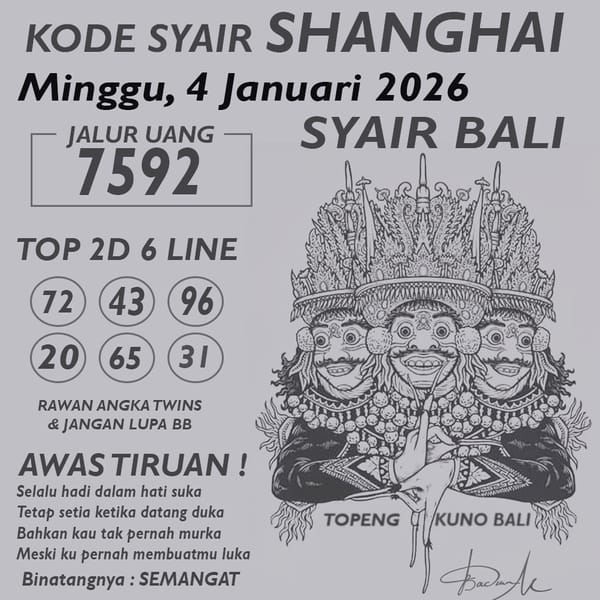 KODE SYAIR SHANGHAI
Minggu, 4 Januari 2026
JALUR UANG
7592
SYAIR BALI
TOP 2D 6 LINE
72 43 96
20 65 31
RAWAN ANGKA TWINS
& JANGAN LUPA BB
AWAS TIRUAN !
Selalu hadi dalam hati suka
Tetap setia ketika datang duka
Bahkan kau tak pernah murka
Meski ku pernah membuatmu luka
Binatangnya : SEMANGAT
TOPENG KUNO BALI